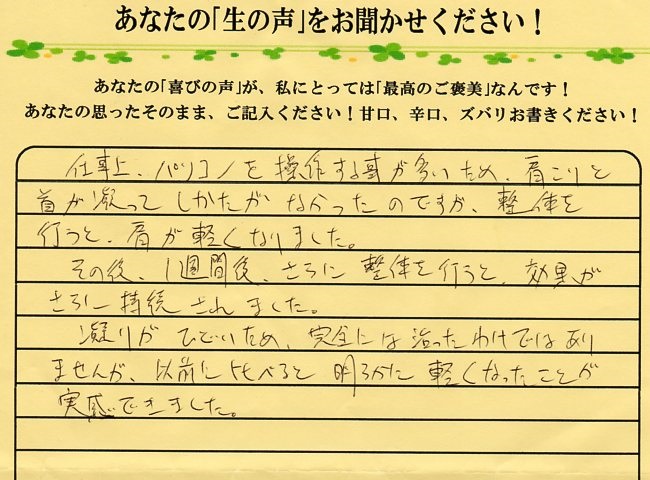 あなたの「生の声」をお聞かせください！
あなたの「喜びの声」が、私にとっては「最高のご褒美」なんです！
あなたの思ったそのまま、ご記入ください！甘口、辛口、ズバリお書きください！
仕事上、パソコンを操作する事が多いため、肩こりと
首が凝ってしかたがなかったのですが、整体を
行うと、肩が軽くなりました。
その後、1週間後、さらに整体を行うと、効果が
さらに持続されました。
凝りがひどいため、完全には治ったわけではあり
ませんが、以前に比べると明らかに軽くなったことが
実感できました。